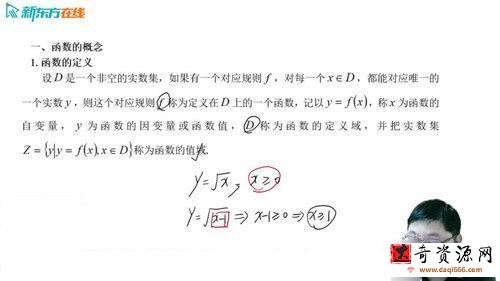 新东方在线
一、函数的概念
1. 函数的定义
设 D 是一个非空的实数集，如果有一个对应规则 f ，对每一个 x∈D ，都能对应唯一的
一个实数 y ，则这个对应规则 f 称为定义在 D 上的一个函数，记以 y = f(x)，称 x 为函数的
自变量， y 为函数的因变量或函数值， D 称为函数的定义域，并把实数集
Z = {y|y = f(x), x∈D} 称为函数的值域.
y=√x, x≥0
y=√x-1 ⇒ x-1≥0 ⇒ x≥1
奇资源网
www.daqi666.com